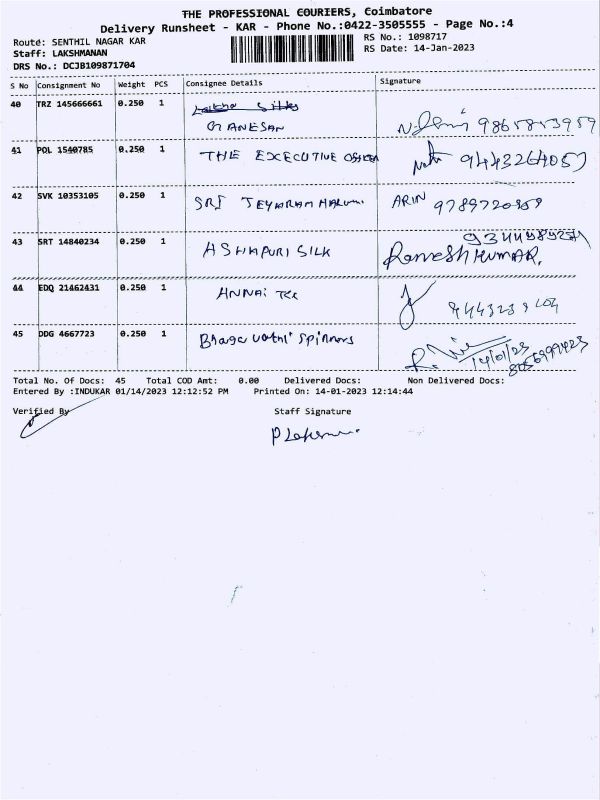 THE PROFESSIONAL COURIERS, Coimbatore
Delivery Runsheet - KAR - Phone No.:0422-3505555 - Page No.:4
Route: SENTHIL NAGAR KAR
RS No.: 1098717
Staff: LAKSHMANAN
RS Date: 14-Jan-2023
DRS No.: DCJB109871704
S No Consignment No Weight PCS Consignee Details Signature
40 TRZ 145666661 0.250 1
GANESAN
41 POL 1540785 0.250 1 THE EXCECUTIVE OFFICER 9443264057
42 SVK 10353105 0.250 1 SRI ARIN 9789720959
43 SRT 14840234 0.250 1 ASHAPURI SILK
RameshKUMAR.
44 EDQ 21462431 0.250 1 ANNAI
45 DDG 4667723 0.250 1 Bhagavathi Spinners
14/01/23
Total No. Of Docs: 45 Total COD Amt: 0.00 Delivered Docs: Non Delivered Docs:
Entered By :INDUKAR 01/14/2023 12:12:52 PM Printed On: 14-01-2023 12:14:44
Verified By Staff Signature